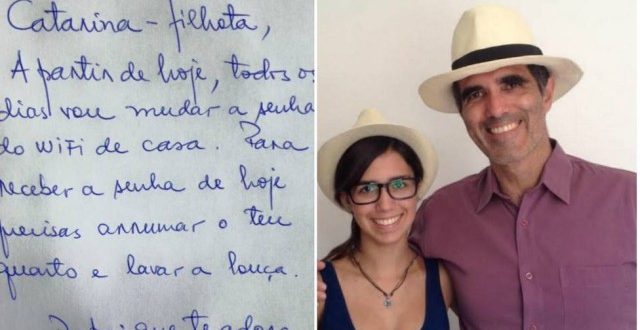 Catarina - filhota,
A partir de hoje, todos os
dias vou mudar a senha
do WiFi de casa. Para
receber a senha de hoje
precisas arrumar o teu
quarto e lavar a louça.
que te adora